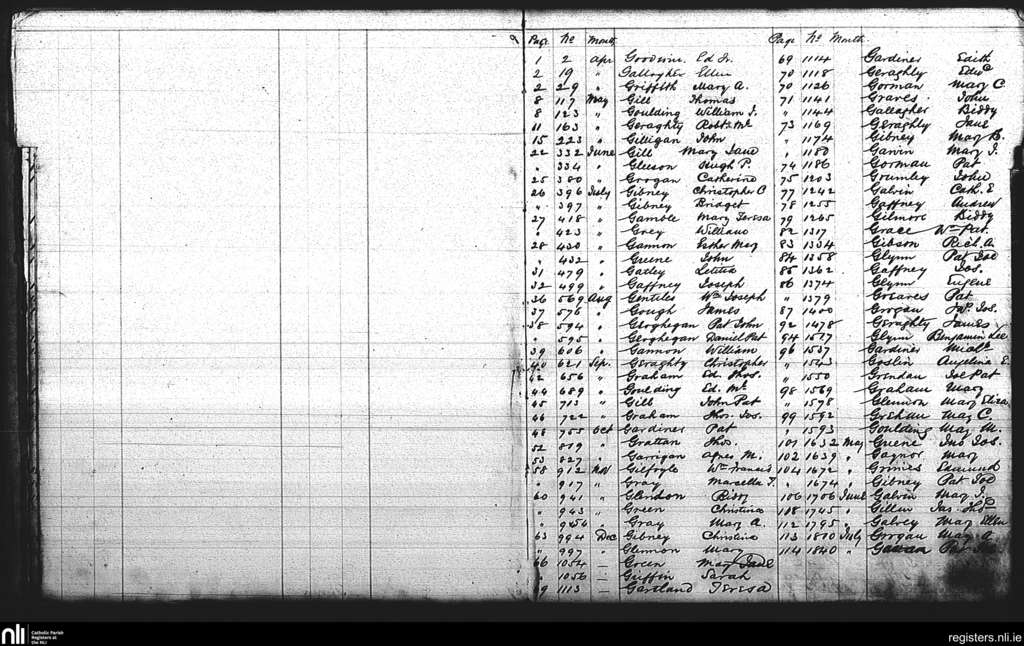 Page No Month
1 2 Apr Goodwin Ed Jr.
2 19 " Gallagher Ellen
2 29 " Griffith Mary A.
8 117 May Gill Thomas
8 123 " Goulding William J.
11 163 " Geraghty Robt
15 223 " Gilligan John
22 332 June Gill Mary Jane
" 334 " Gleeson Hugh P.
25 380 " Grogan Catherine
26 396 July Gibney Christopher C
" 397 " Gibney Bridget
27 418 " Gamble Mary Teresa
" 423 " Grey William
28 430 " Gannon Esther Mary
" 432 " Greene John
31 479 " Gatley Letitia
32 499 " Gaffney Joseph
36 569 Aug Gentiles Wm Joseph
37 576 " Gough James
38 594 " Geoghegan Pat John
" 595 " Geoghegan Daniel Pat
39 606 " Gannon William
40 621 Sep. Geraghty Christopher
42 656 " Graham Ed. Thos.
44 689 " Goulding Ed.
45 713 " Gill John Pat
46 722 " Graham Thos. Jos.
48 755 Oct Gardiner Pat
52 819 " Grattan Thos.
53 827 " Garrigan Agnes M.
58 912 Nov Gilfoyle Wm Francis
" 917 " Gray Marcella F.
60 941 " Glendon Biddy
" 943 " Green Christina
" 956 " Gray Mary A.
63 994 Dec Gibney Christina
" 997 " Glennon Mary
66 1054 — Green Mary Jane
1056 — Griffin Sarah
69 1113 — Gartland Teresa
Page No Month
69 1114 Gardiner Edith
70 1118 Geraghty Edwd
70 1126 Gorman Mary C
71 1141 Graves John
" 1144 Gallagher Biddy
73 1169 Geraghty Jane
" 1174 Gibney Mary B.
" 1180 Gavin Mary J.
74 1186 Gorman Pat
75 1203 Grumley John
77 1242 Galvin Cath. E
78 1255 Gaffney Andrew
79 1265 Gilmore Biddy
82 1317 Grace Wm Pat.
83 1334 Gibson Rich. A.
84 1358 Glynn Pat Joe
85 1362 Gaffney Jos.
86 1374 Glynn Eugene
" 1379 Greaves Pat
87 1400 Grogan Jos.
92 1478 Geraghty James
94 1517 Glynn Benjamin Lee
96 1537 Gardiner Michl
" 1543 Goslin Angelina E.
" 1550 Grendon Joe Pat
98 1569 Graham Mary
" 1578 Glennon Mary Eliza
99 1592 Graham Mary C.
" 1593 Goulding Mary M.
101 1632 May Greene Jno Jos.
102 1639 " Gaynor Mary
104 1672 " Grimes Edmund
" 1674 " Gibney Pat Joe
106 1706 June Galvin Mary J.
108 1745 " Gillen Jas. Thos
112 1795 " Galvey Mary Ellen
113 1810 July Grogan Mary A
114 1840 " Gavan Pat
nli Catholic Parish
Registers at
the NLI
registers.nli.ie